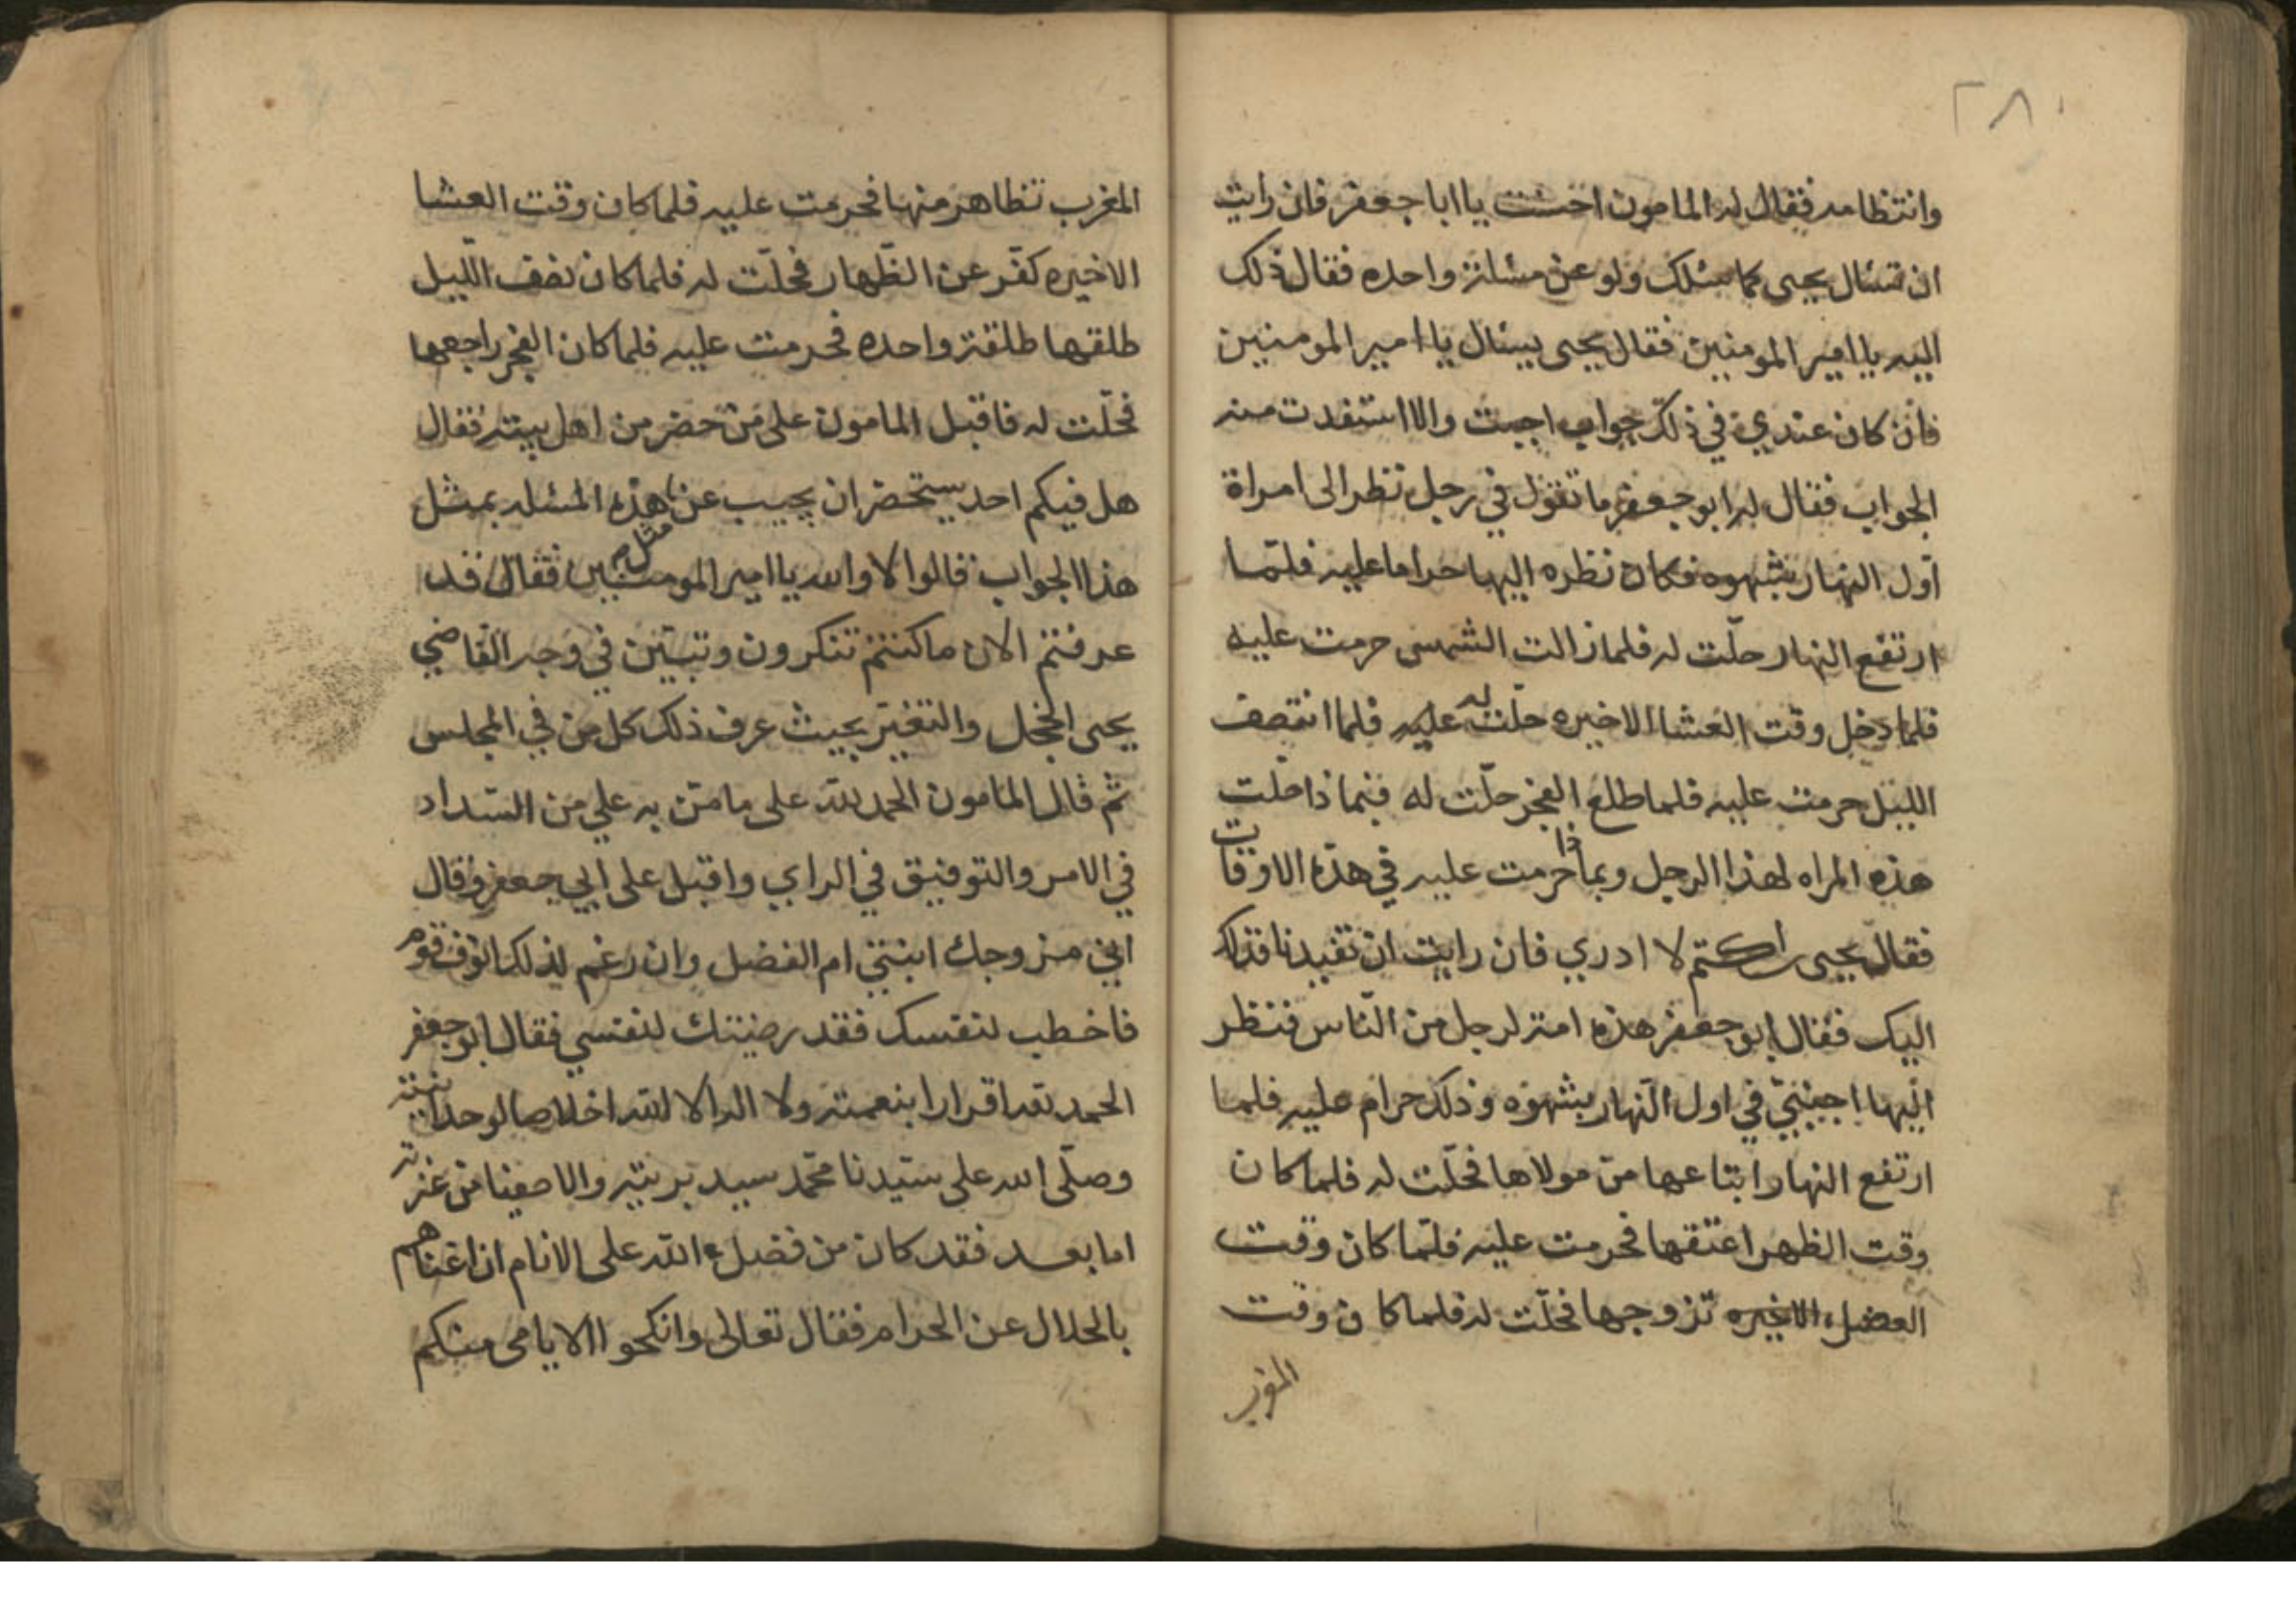 ٢٨١
وانتظامه فقال له المامون احسنت يا ابا جعفر فان رايت
ان تسئال يحيى كما سئلك ولو عن مسئلة واحده فقال ذلك
اليه يا امير المومنين فقال يحيى يسئال يا امير المومنين
فان كان عندي في ذلك جواب اجبت والا استفدت منه
الجواب فقال له ابو جعفر ما تقول في رجل نظر الى امراة
اول النهار بشهوه فكان نظره اليها حراما عليه فلمّا
ارتفع النهار حلّت له فلما زالت الشمس حرمت عليه
فلما دخل وقت العشا الاخيره حلّت له عليه فلما انتصف
الليل حرمت عليه فلما طلع الفجر حلّت له فبماذا حلّت
هذه المراه لهذا الرجل وبماذا حرمت عليه في هذه الاوقات
فقال يحيى لا ادري فان رايت ان تفيدنا فذلك
اليك فقال ابو جعفر هذه امة لرجل من النّاس فنظر
اليها اجنبيّ في اول النّهار بشهوه وذلك حرام عليه فلما
ارتفع النهار ابتاعها من مولاها فحلّت له فلما كان
وقت الظهر اعتقها فحرمت عليه فلمّا كان وقت
العصر الاخيره تزوجها فحلّت له فلما كان وقت
المغرب
المغرب تظاهر منها فحرمت عليه فلما كان وقت العشا
الاخيره كفّر عن الظّهار فحلّت له فلما كان نصف اللّيل
طلقها طلقة واحده فحرمت عليه فلما كان الفجر راجعها
فحلّت له فاقبل المامون على من حضر من اهل بيته فقال
هل فيكم احد يستحضر ان يجيب عن هذه المسئله بمثل
هذا الجواب قالوا لا والله يا امير المومنين فقال قد
عرفتم الان ما كنتم تنكرون وتبيّن في وجه القاضي
يحيى الخجل والتغيّر بحيث عرف ذلك كل من في المجلس
ثم قال المامون الحمد لله على ما منّ به علي من السّداد
في الامر والتوفيق في الراي واقبل على ابي جعفر وقال
اني مزوجك ابنتي ام الفضل وان رغم لذلك انوف قوم
فاخطب لنفسك فقد رضيتك لنفسي فقال ابو جعفر
الحمد لله اقرارا بنعمته ولا اله الا الله اخلاصا لوحدانيته
وصلّى الله على سيّدنا محمّد سيد بريته والاصفيا من عترته
اما بعد فقد كان من فضل الله على الانام ان اغناهم
بالحلال عن الحرام فقال تعالى وانكحوا الايامى منكم